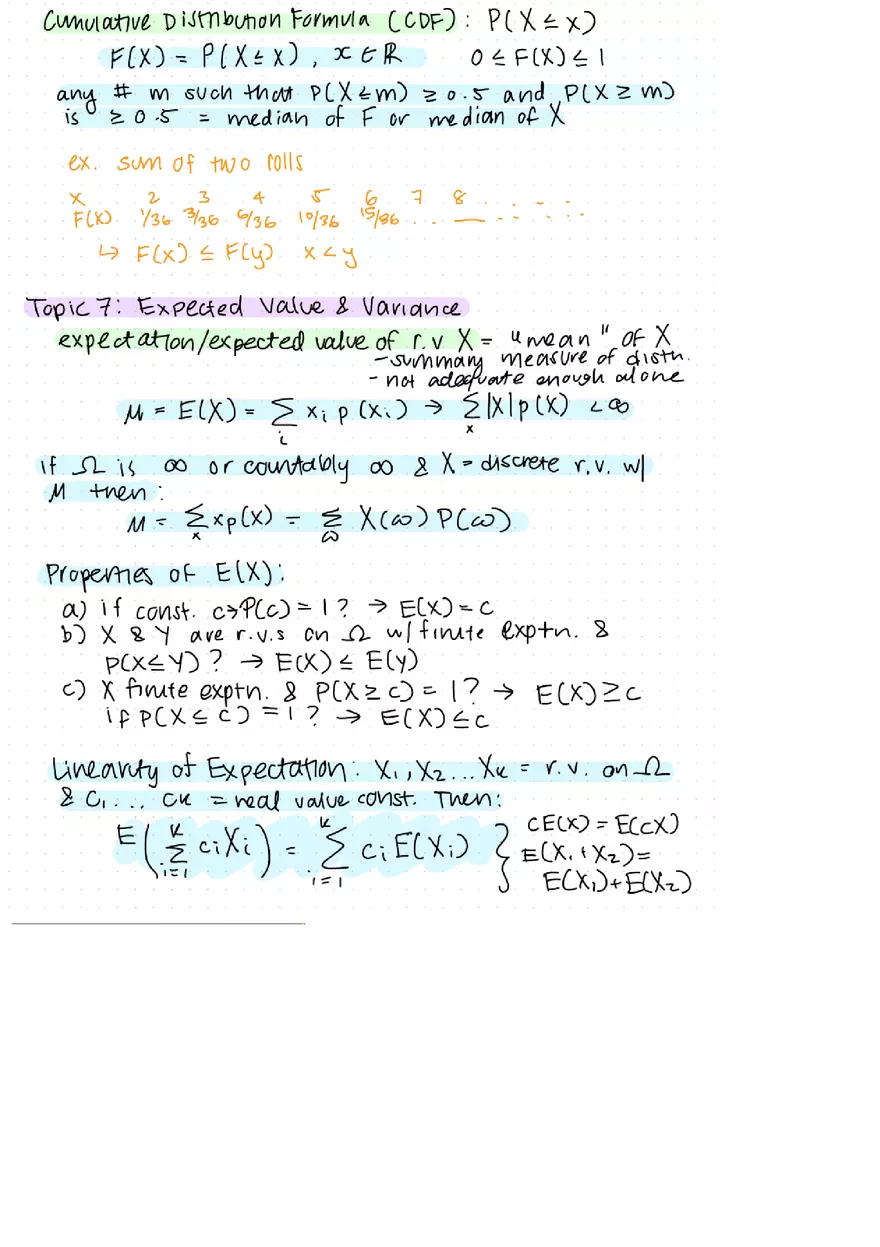 Cumulative Distribution Formula (CDF): P(X ≤ x)
F(X) = P(X ≤ x), x ∈ ℝ 0 ≤ F(X) ≤ 1
any # m such that P(X ≤ m) ≥ 0.5 and P(X ≥ m)
is ≥ 0.5 = median of F or median of X
ex. sum of two rolls
x 2 3 4 5 6 7 8 . . . . .
F(X) 1/36 3/36 6/36 10/36 15/36 . . — . . . . .
↳ F(x) ≤ F(y) x < y
Topic 7: Expected Value & Variance
expectation/expected value of r.v X = "mean" of X
- summary measure of distn.
- not adequate enough alone
M = E(X) = Σ_i x_i p(x_i) → Σ_x |X|p(X) < ∞
if Ω is ∞ or countably ∞ & X = discrete r.v. w/
M then:
M = Σ_x xp(x) = Σ_ω X(ω) P(ω)
Properties of E(X):
a) if const. c → P(c) = 1? → E(X) = c
b) X & Y are r.v.s on Ω w/ finite exptn. &
P(X ≤ Y)? → E(X) ≤ E(y)
c) X finite exptn. & P(X ≥ c) = 1? → E(X) ≥ c
if P(X ≤ c) = 1? → E(X) ≤ c
Linearity of Expectation: X₁, X₂ ... Xₖ = r.v. on Ω
& C₁, ... Cₖ = real value const. Then:
E(Σ_{i=1}^{k} c_i X_i) = Σ_{i=1}^{k} c_i E(X_i) } CE(X) = E(cX)
E(X₁ + X₂) =
E(X₁) + E(X₂)